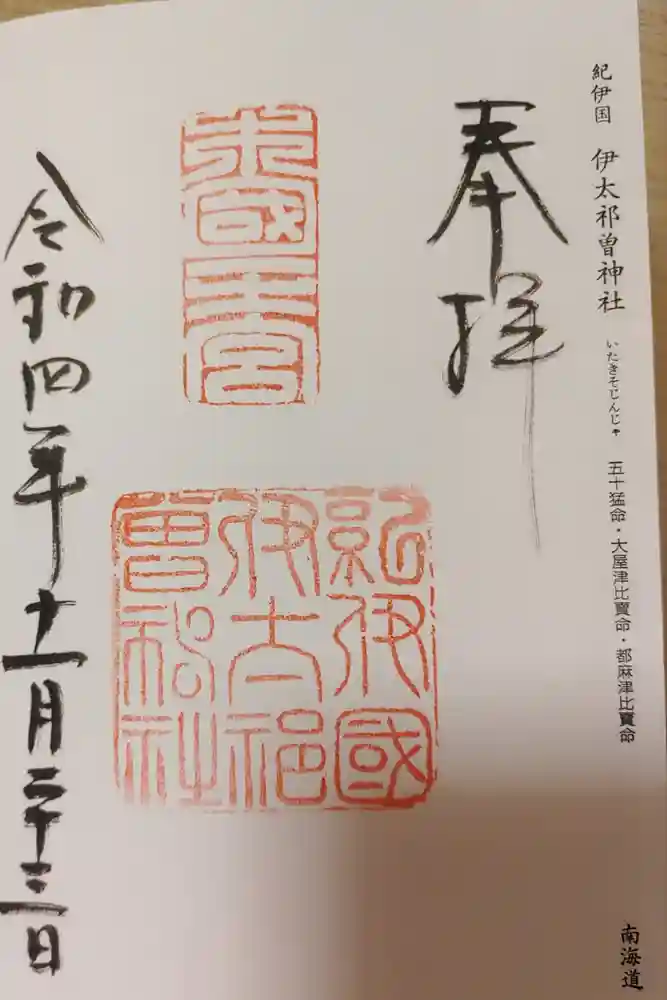 紀伊国 伊太祁曽神社 いたきそじんじゃ 五十猛命・大屋津比賣命・都麻津比賣命
南海道
奉拝
紀伊國
伊太祁
曽神社
令和四年十一月二十三日